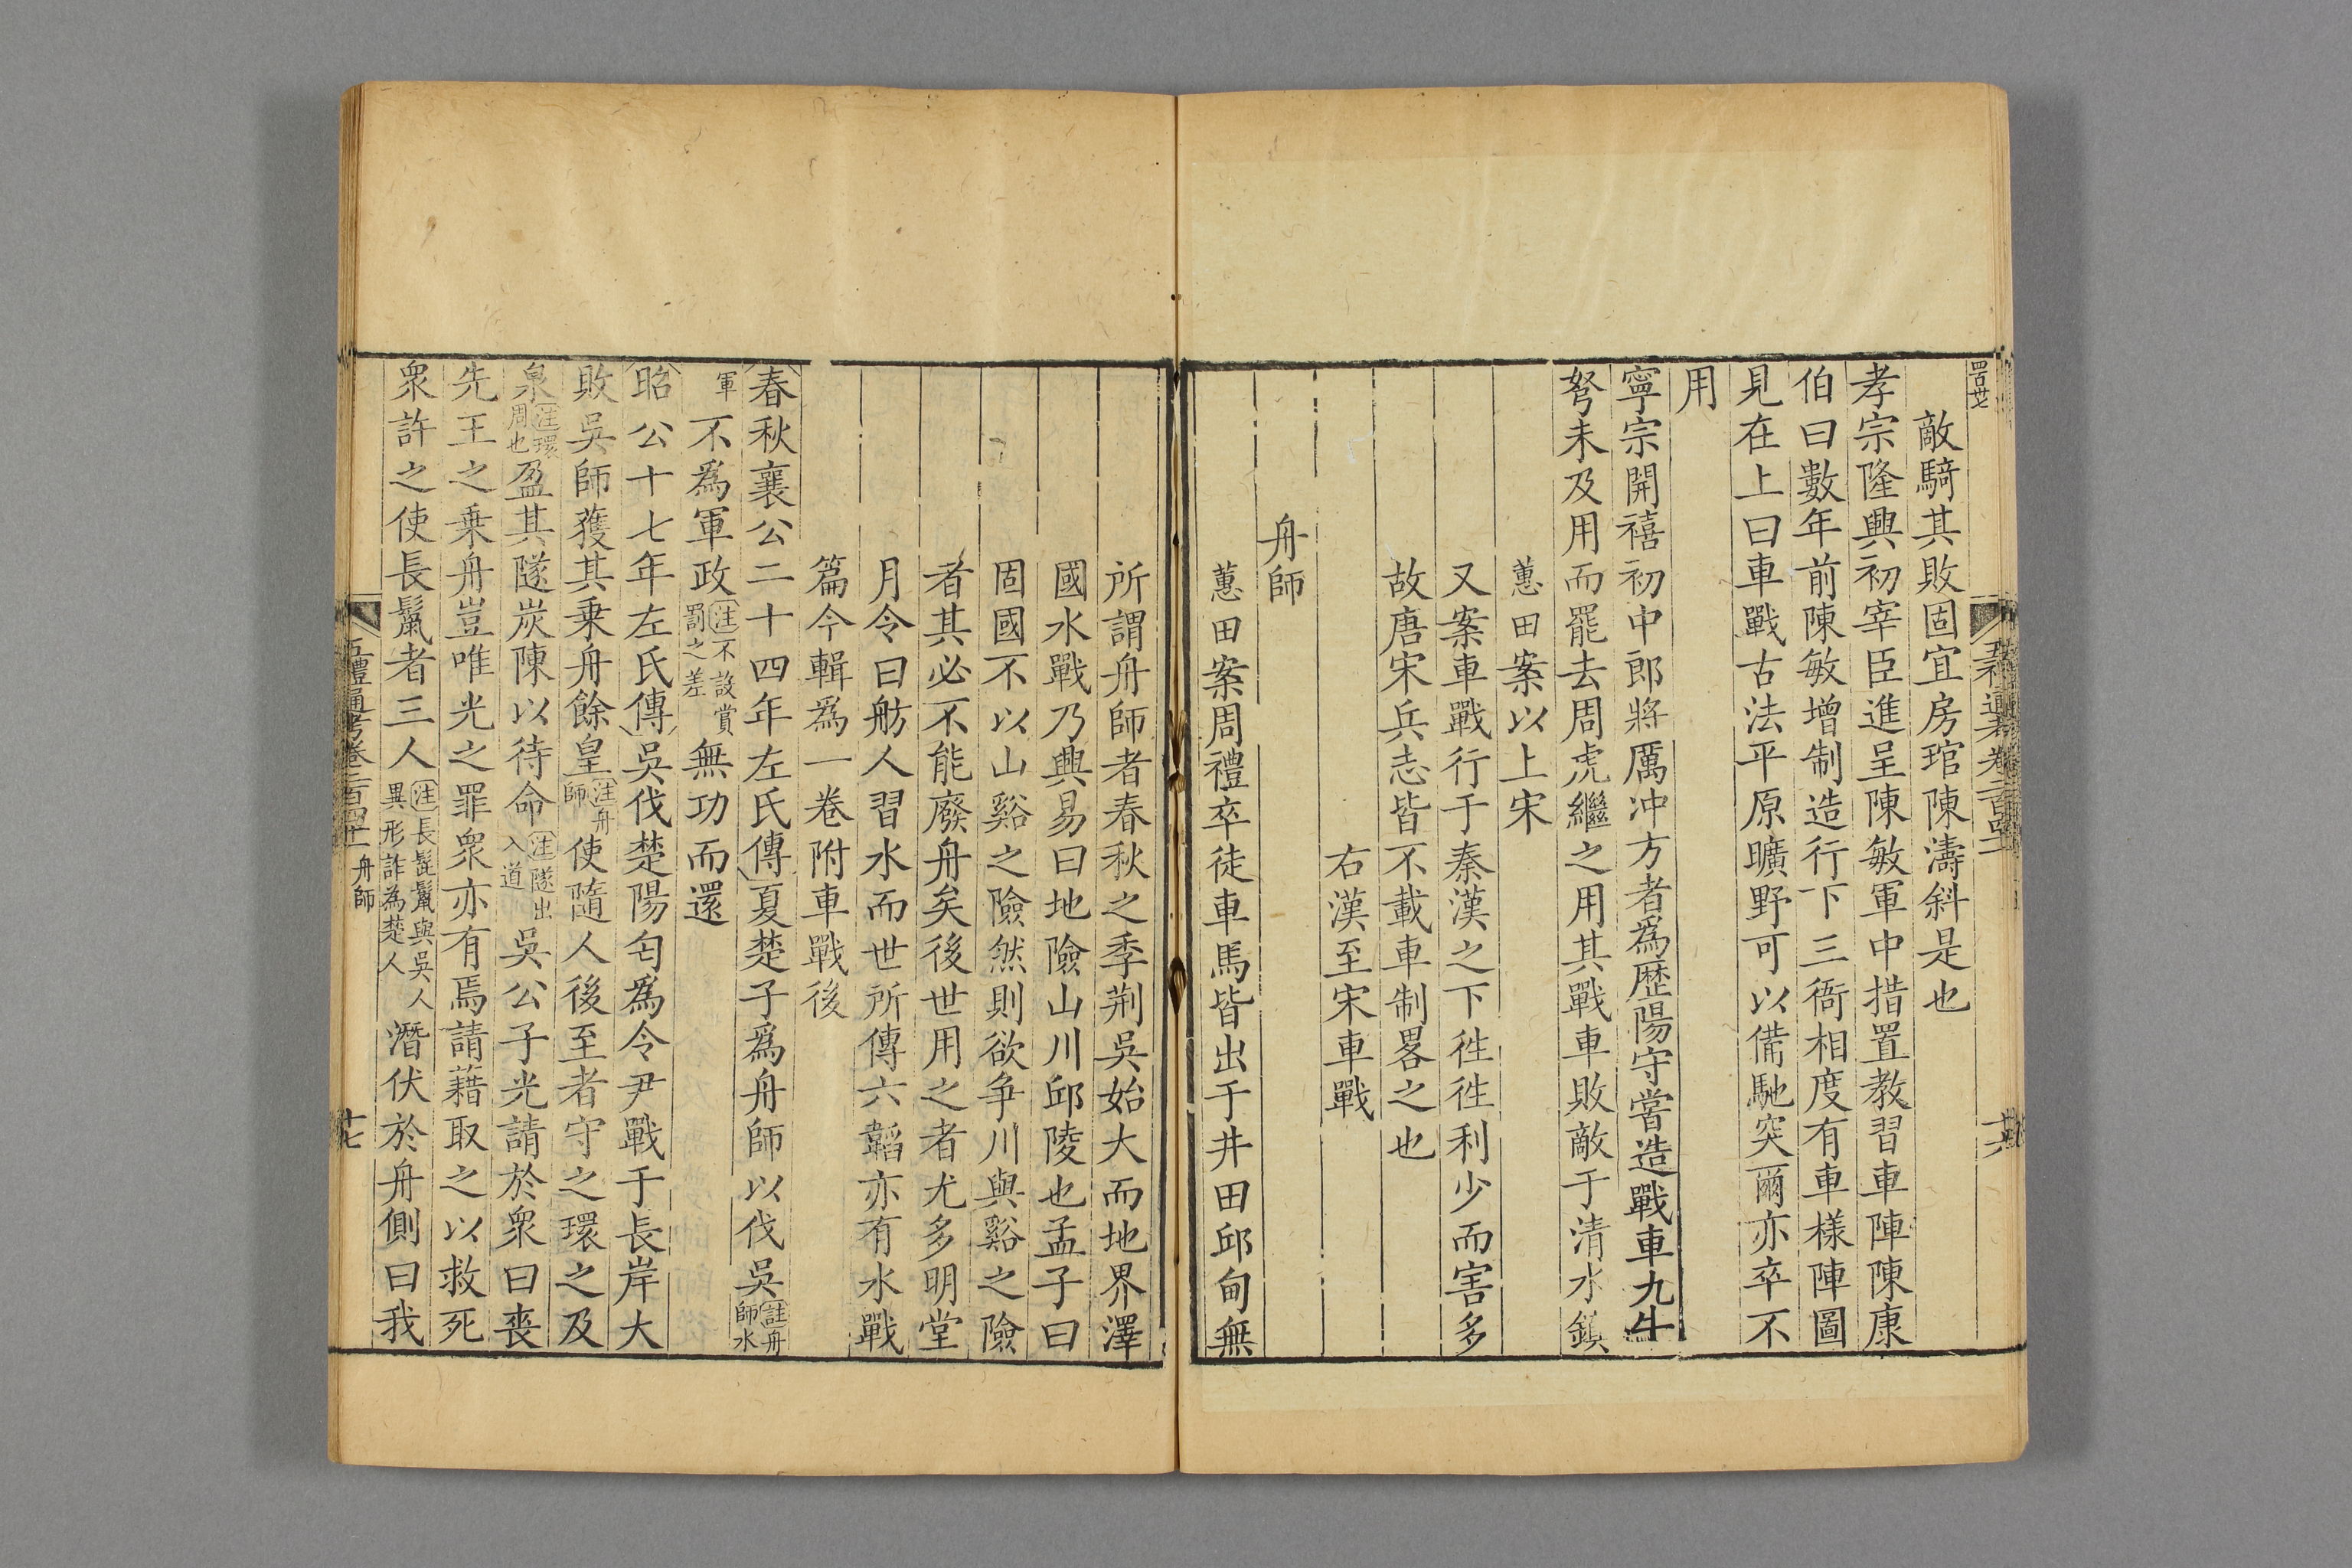 敵騎其敗固宜房琯陳濤斜是也
孝宗隆興初宰臣進呈陳敏軍中措置教習車陣陳康
伯曰數年前陳敏增制造行下三衙相度有車様陣圖
見在上曰車戰古法平原曠野可以備馳突爾亦卒不
用
寧宗開禧初中郎將厲冲方者爲歴陽守嘗造戰車九牛
弩未及用而罷去周虎繼之用其戰車敗敵于清水鎮
蕙田案以上宋
又案車戰行于秦漢之下徃徃利少而害多
故唐宋兵志皆不載車制畧之也
右漢至宋車戰
舟師
蕙田案周禮卒徒車馬皆出于井田邱甸無
所謂舟師者春秋之季荆吳始大而地界澤
國水戰乃興易曰地險山川邱陵也孟子曰
固國不以山谿之險然則欲争川與谿之險
者其必不能廢舟矣後世用之者尤多明堂
月令曰舫人習水而世所傳六韜亦有水戰
篇今輯爲一卷附車戰後
春秋襄公二十四年左氏傳夏楚子爲舟師以伐吳註舟師水
軍不爲軍政注不設賞罰之差無功而還
昭公十七年左氏傳吳伐楚陽匄爲令尹戰于長岸大
敗吳師獲其乗舟餘皇注舟師使隨人後至者守之環之及
泉注環周也盈其隧炭陳以待命注隧出入道吳公子光請於衆曰喪
先王之乗舟豈唯光之罪衆亦有焉請藉取之以救死
衆許之使長鬣者三人注長髭鬣與吳人異形詐為楚人潛伏於舟側曰我
五禮通考卷二百四十一 舟師
十七